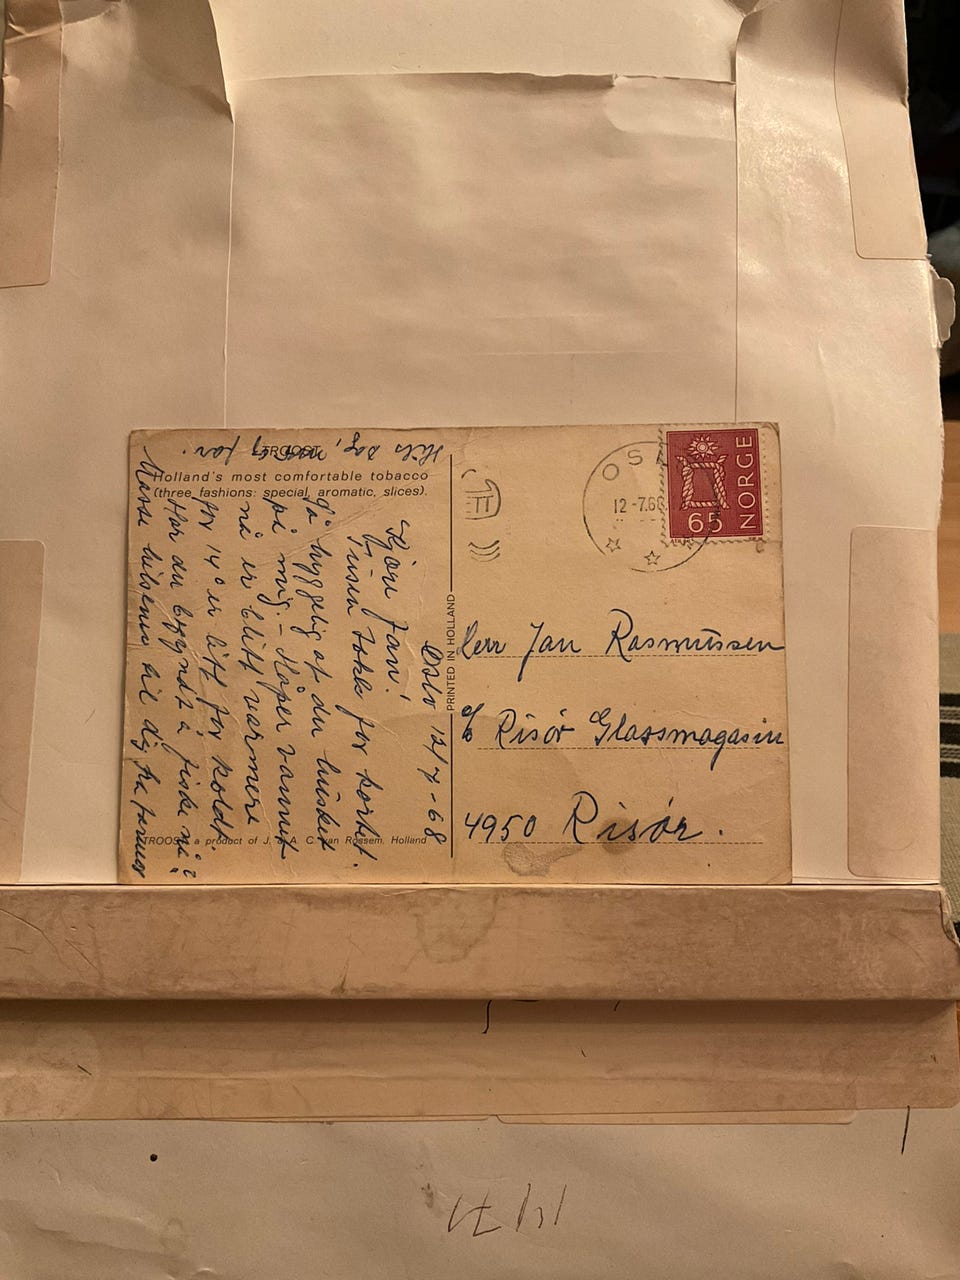 TROOST
Holland's most comfortable tobacco
(three fashions: special, aromatic, slices).
Oslo 12/7-68
Kjære Jan!
Tusen takk for kortet.
Så hyggelig at du husket
på mig. - Håper vannet
nå er blitt varmere
for 14° er litt for koldt.
Har du begyndt å fiske nå?
Masse hilsener til dig fra
Hils
far.
TROOST, a product of J. & A. C. van Rossem, Holland
PRINTED IN HOLLAND
OS
12-7.68
NORGE
65
Herr Jan Rasmussen
c/o Risør Glassmagasin
4950 Risør.